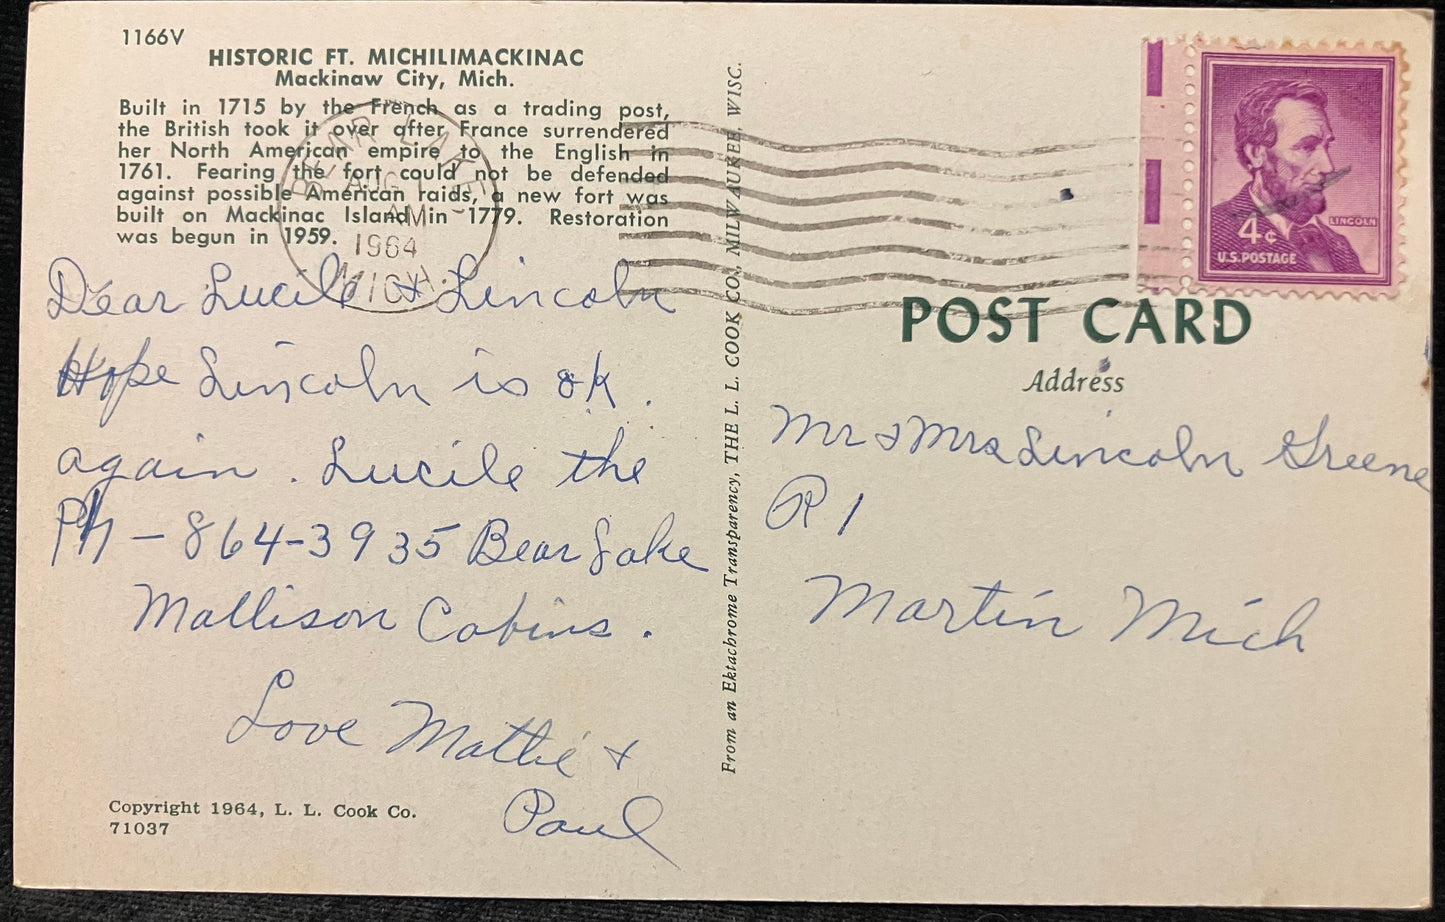 1166V
HISTORIC FT. MICHILIMACKINAC
Mackinaw City, Mich.
Built in 1715 by the French as a trading post,
the British took it over after France surrendered
her North American empire to the English in
1761. Fearing the fort could not be defended
against possible American raids, a new fort was
built on Mackinac Island in 1779. Restoration
was begun in 1959.
BEAR LAKE
AUG
AM
1964
MICH.
Dear Lucile & Lincoln
Hope Lincoln is ok.
again. Lucile the
Ph - 864-3935 Bear Lake
Mallison Cabins.
Love Mattie &
Paul
Copyright 1964, L. L. Cook Co.
71037
From an Ektachrome Transparency, THE L. L. COOK CO., MILWAUKEE, WISC.
LINCOLN
4¢
U.S. POSTAGE
POST CARD
Address
Mr & Mrs Lincoln Greene
R 1
Martin Mich